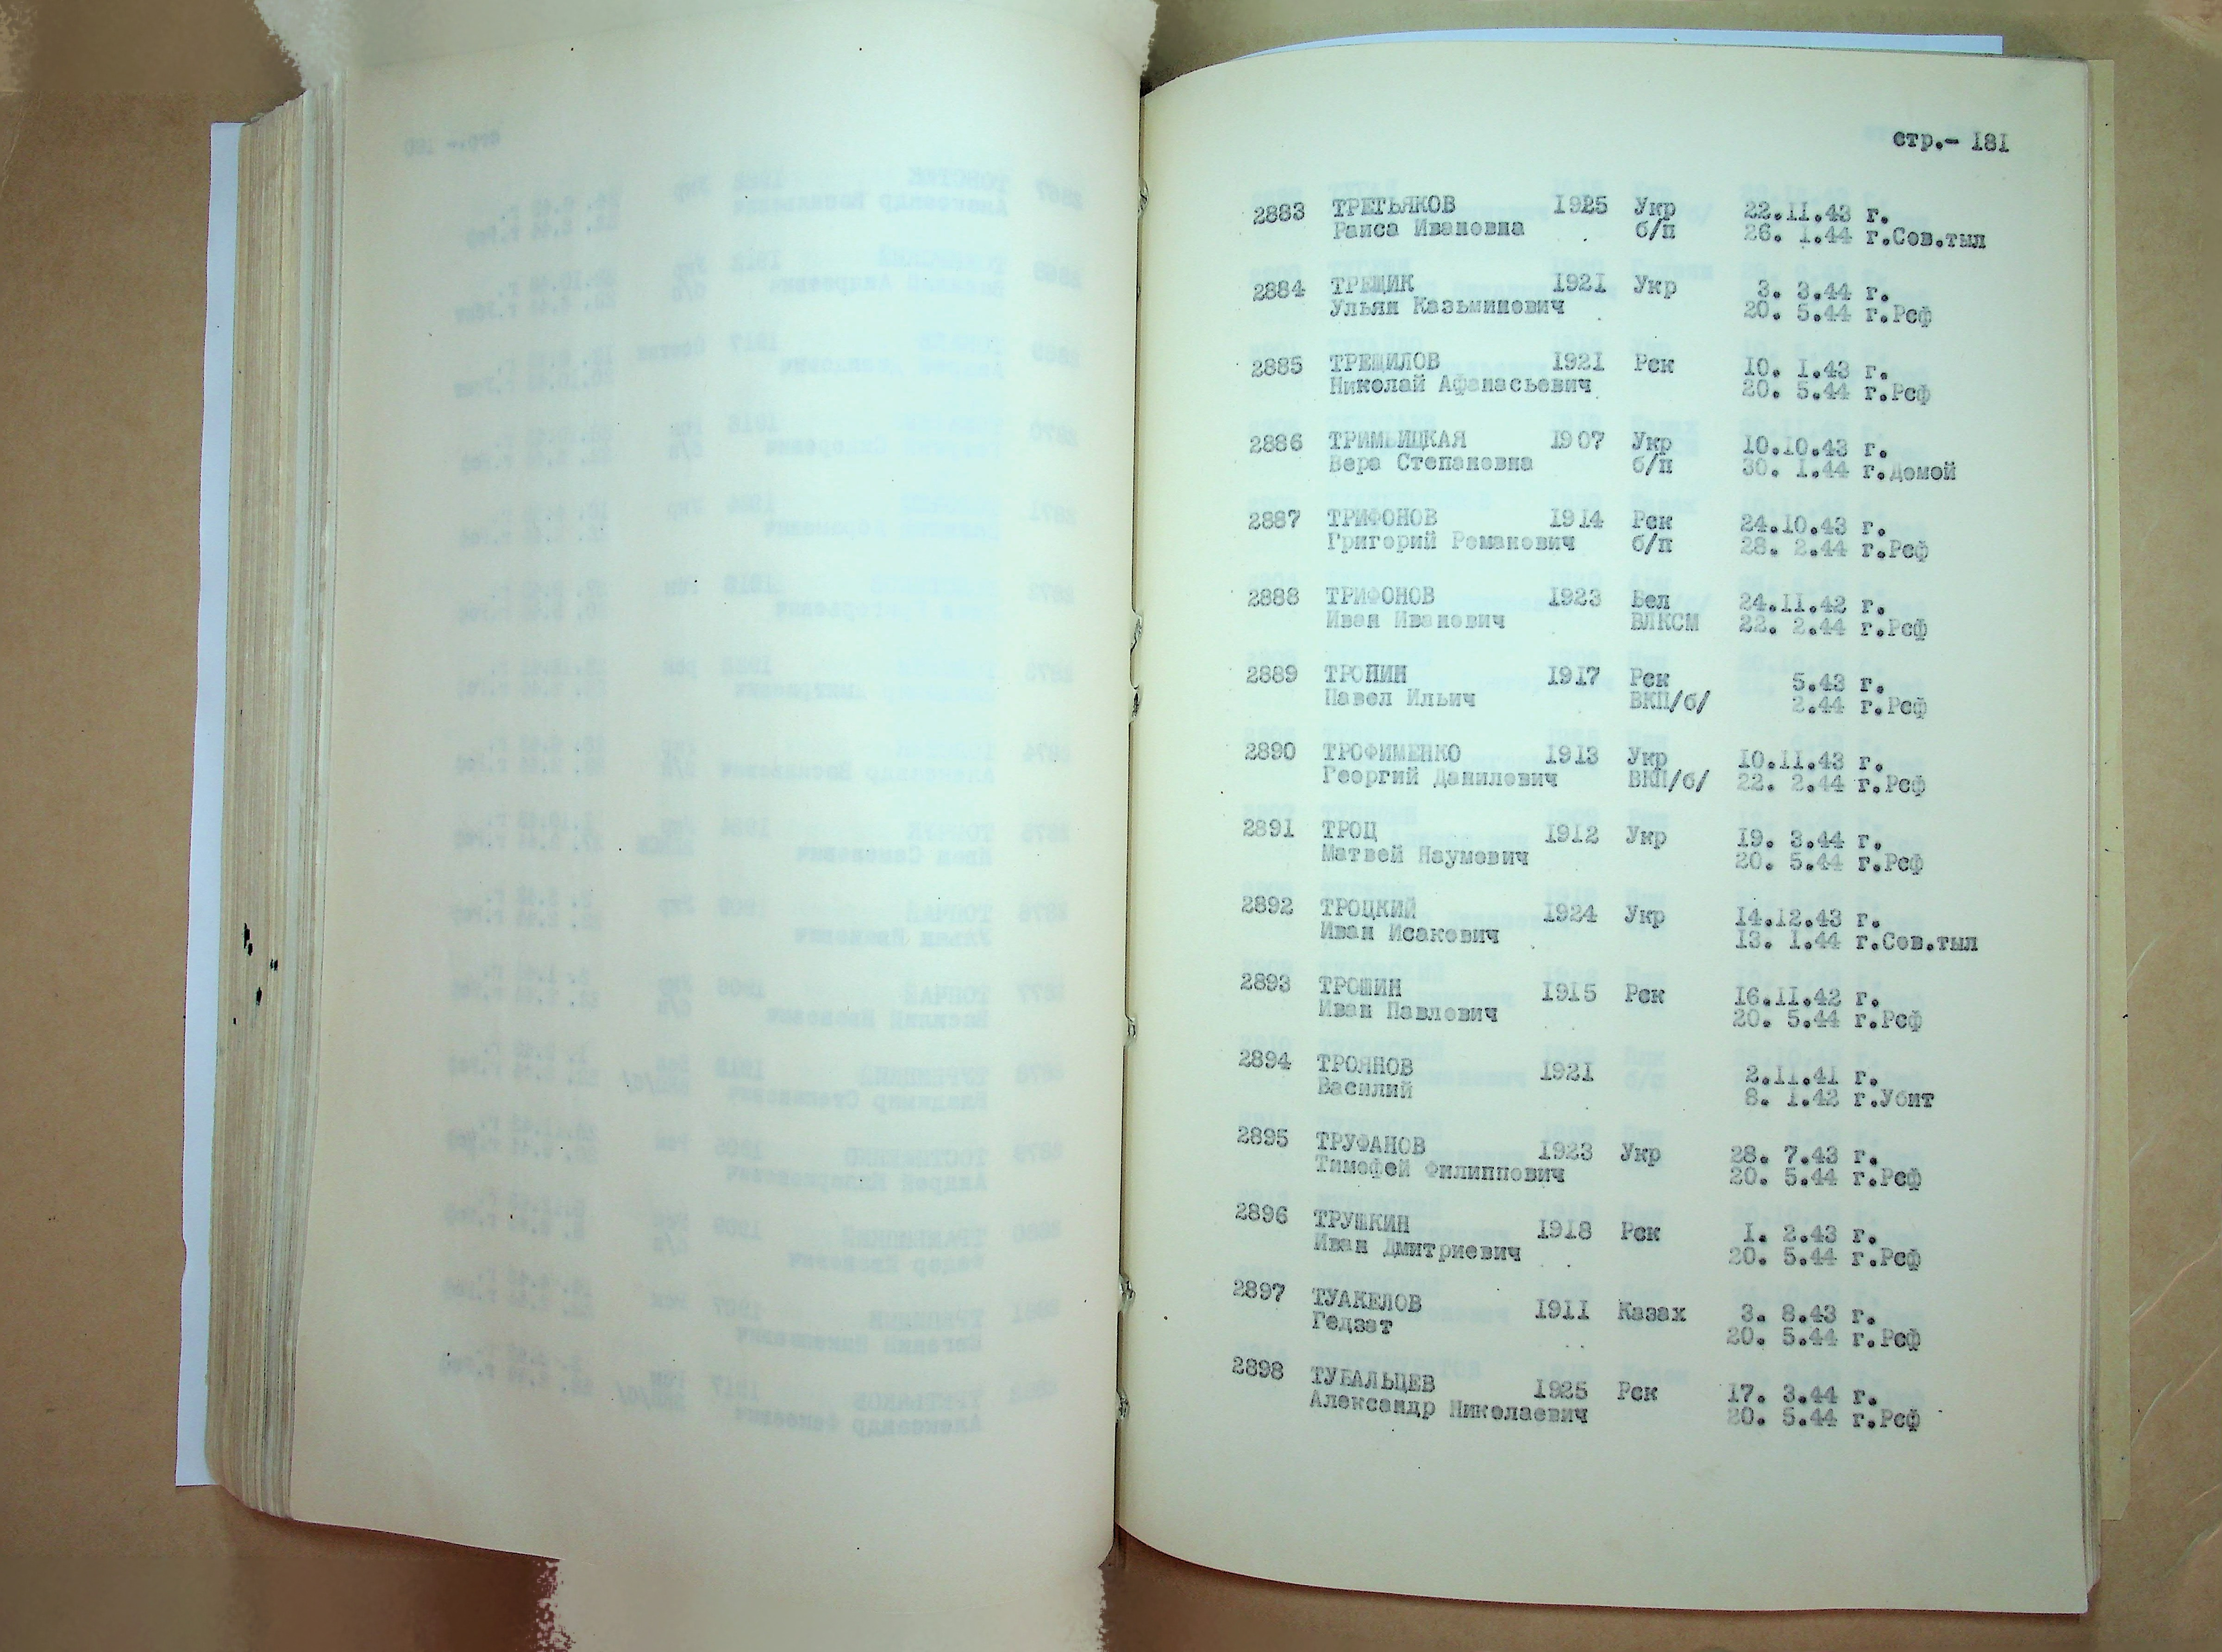 стр.- 181
2883 ТРЕТЬЯКОВ 1925 Укр 22.11.43 г.
Раиса Ивановна б/п 26. 1.44 г.Сов.тыл
2884 ТРЕЩИК 1921 Укр 3. 3.44 г.
Ульян Казьминович 20. 5.44 г.Рсф
2885 ТРЕЩИЛОВ 1921 Рск 10. 1.43 г.
Николай Афанасьевич 20. 5.44 г.Рсф
2886 ТРИМБИЦКАЯ 1907 Укр 10.10.43 г.
Вера Степановна б/п 30. 1.44 г.Домой
2887 ТРИФОНОВ 1914 Рск 24.10.43 г.
Григорий Романович б/п 28. 2.44 г.Рсф
2888 ТРИФОНОВ 1923 Бел 24.11.42 г.
Иван Иванович ВЛКСМ 22. 2.44 г.Рсф
2889 ТРОПИН 1917 Рск 5.43 г.
Павел Ильич ВКП/б/ 2.44 г.Рсф
2890 ТРОФИМЕНКО 1913 Укр 10.11.43 г.
Георгий Данилович ВКП/б/ 22. 2.44 г.Рсф
2891 ТРОЦ 1912 Укр 19. 3.44 г.
Матвей Наумович 20. 5.44 г.Рсф
2892 ТРОЦКИЙ 1924 Укр 14.12.43 г.
Иван Исакович 13. 1.44 г.Сов.тыл
2893 ТРОШИН 1915 Рск 16.11.42 г.
Иван Павлович 20. 5.44 г.Рсф
2894 ТРОЯНОВ 1921 2.11.41 г.
Василий 8. 1.42 г.Убит
2895 ТРУФАНОВ 1923 Укр 28. 7.43 г.
Тимофей Филиппович 20. 5.44 г.Рсф
2896 ТРУШКИН 1918 Рск 1. 2.43 г.
Иван Дмитриевич 20. 5.44 г.Рсф
2897 ТУАКЕЛОВ 1911 Казах 3. 8.43 г.
Гедзат 20. 5.44 г.Рсф
2898 ТУБАЛЬЦЕВ 1925 Рск 17. 3.44 г.
Александр Николаевич 20. 5.44 г.Рсф